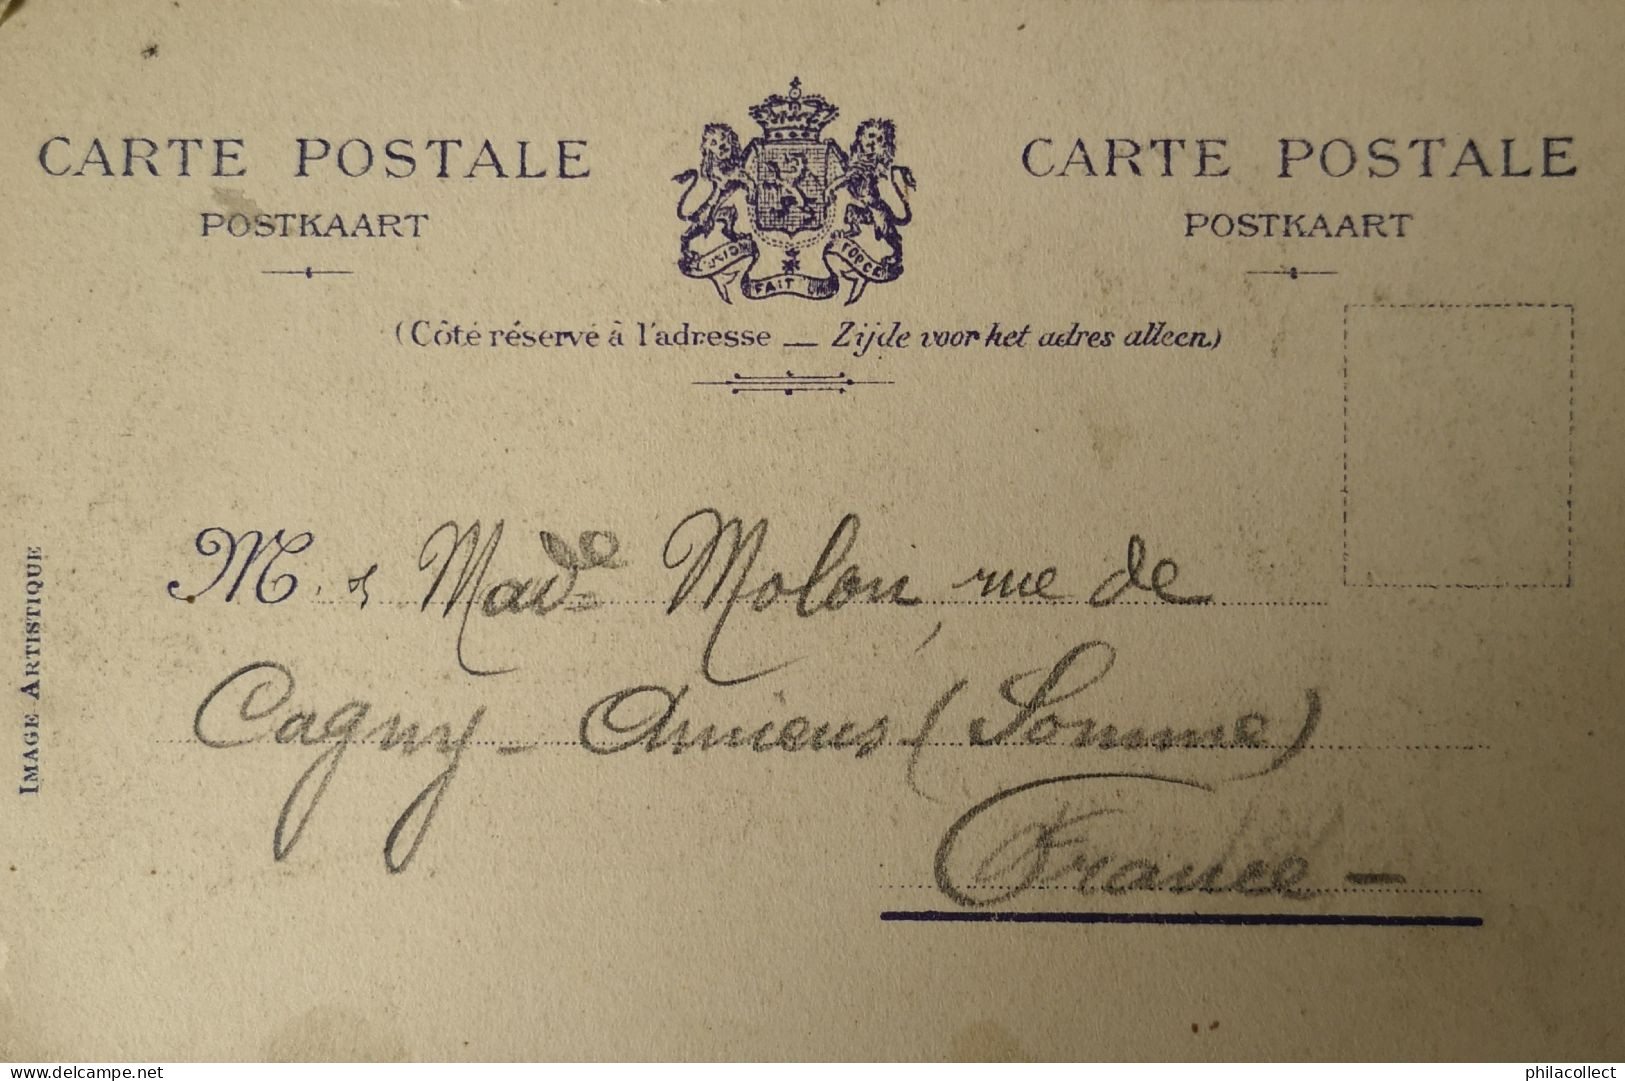 CARTE POSTALE CARTE POSTALE
POSTKAART POSTKAART
UNION FAIT FORCE
(Côté réservé à l'adresse — Zijde voor het adres alleen)
M. & Made Molon, rue de
Cagny - Amiens (Somme)
France -
IMAGE ARTISTIQUE
delcampe.net philacollect